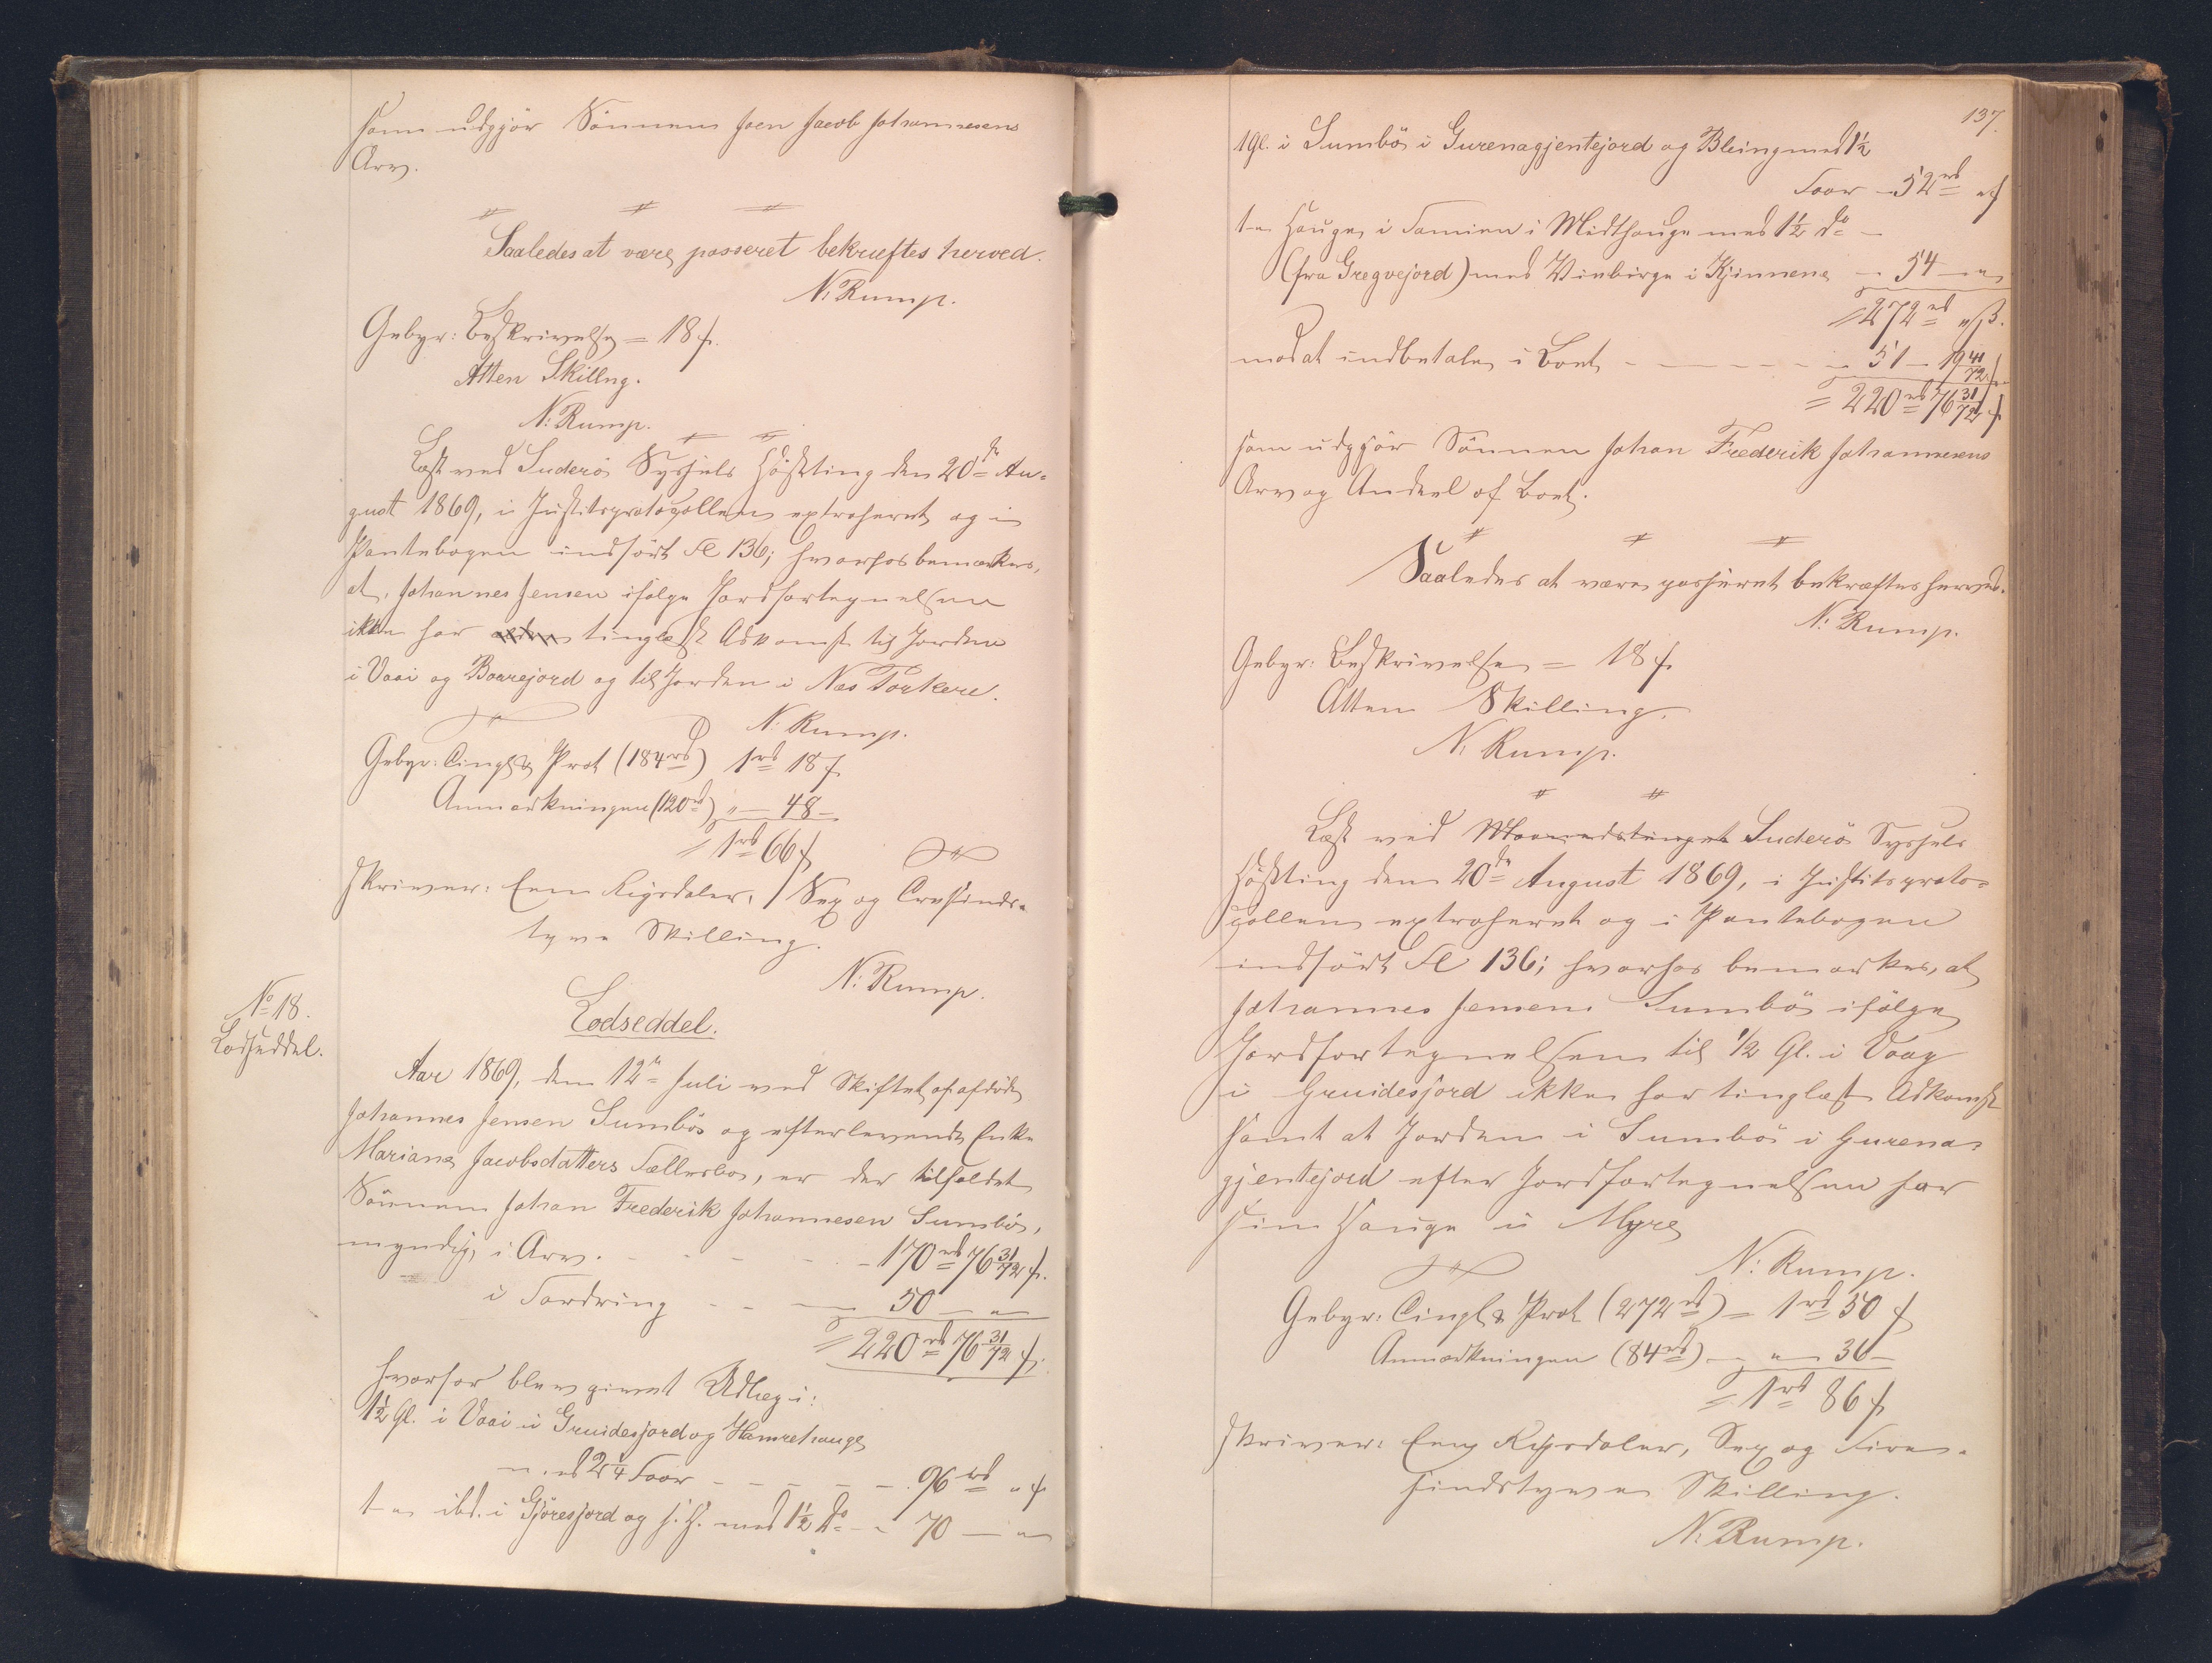 som udgjør Sønnens Joen Jacob Johannesens
Arv.
Saaledes at være passeret bekræftes herved.
N. Rump.
Gebyr: Beskrivelse = 18 s.
Atten Skillng.
N: Rump.
Læst ved Suderö Syssels Høstting den 20de Au-
gust 1869, i Justitsprotocollen extraheret og i
Pantebogen indført Fl 136; hvorhos bemærkes,
at Johannes Jensen ifølge Jordfortegnelsen
ikke har tinglæst Adkomst til Jorden
i Vaai og Borrejord og til Jorden i Næs Torkere.
N. Rump.
Gebyr: Tingl & Prot (184 rd) 1 rd 18 s
Anmærkningen (120 rd) " — 48 —
= 1 rd 66 s
skriver: Een Rigsdaler, Sex og Tresinds-
tyve Skilling.
N: Rump.
No 18.
Lodseddel.
Lodseddel.
Aar 1869, den 12te Juli ved Skiftet af afdøde
Johannes Jensen Sumbös og efterlevende Enke
Mariane Jacobsdatters Fællesbo, er der tilfaldet
Sønnen Johan Frederik Johannesen Sumbö,
myndig, i Arv - - - 170 rd 76 31/72 s.
i Fordring - - — 50 — "
= 220 rd 76 31/72 s.
hvorfor blev givet Udlæg i:
1½ Gl. i Vaai i Gruidesjord og Hamrehauge
med 2¼ Foor - - - - 96 rd " s
1 - " ibd. i Gjøresjord og s. H. med 1½ do - " 70 — "
137.
1 Gl. i Sumbö i Gurenagjentejord og Bleing med 1½
Foor - 52 rd " s
1 - " Hauge i Famien i Midthauge med 1½ do —
(fra Gregvejord) med Vinbirge i Kjinnene — 54 — "
= 272 rd " ß.
mod at indbetale i Boet - — - — - 51 — 19 41/72
= 220 rd 76 31/72 s
som udgjør Sønnen Johan Frederik Johannesens
Arv og Andeel af Boet.
Saaledes at være passeret bekræftes herved.
N: Rump.
Gebyr: Beskrivelse = 18 s.
Atten Skilling.
N. Rump.
Læst ved Suderö Syssels
Høstting den 20de August 1869, i Justitsproto-
collen extraheret og i Pantebogen
indført Fl 136; hvorhos bemærkes, at
Johannes Jensen Sumbö ifølge
Jordfortegnelsen til ½ Gl. i Vaag
i Gruidesjord ikke har tinglæst Adkomst
samt at Jorden i Sumbö i Gurena-
gjentejord efter Jordfortegnelsen har
sin Hauge i Myre
N: Rump.
Gebyr: Tingl & Prot (272 rd) — 1 rd 50 s
Anmærkningen (84 rd) — " — 36 —
= 1 rd 86 s
skriver: Een Rigsdaler, Sex og Fire-
sindstyve Skilling.
N: Rump.